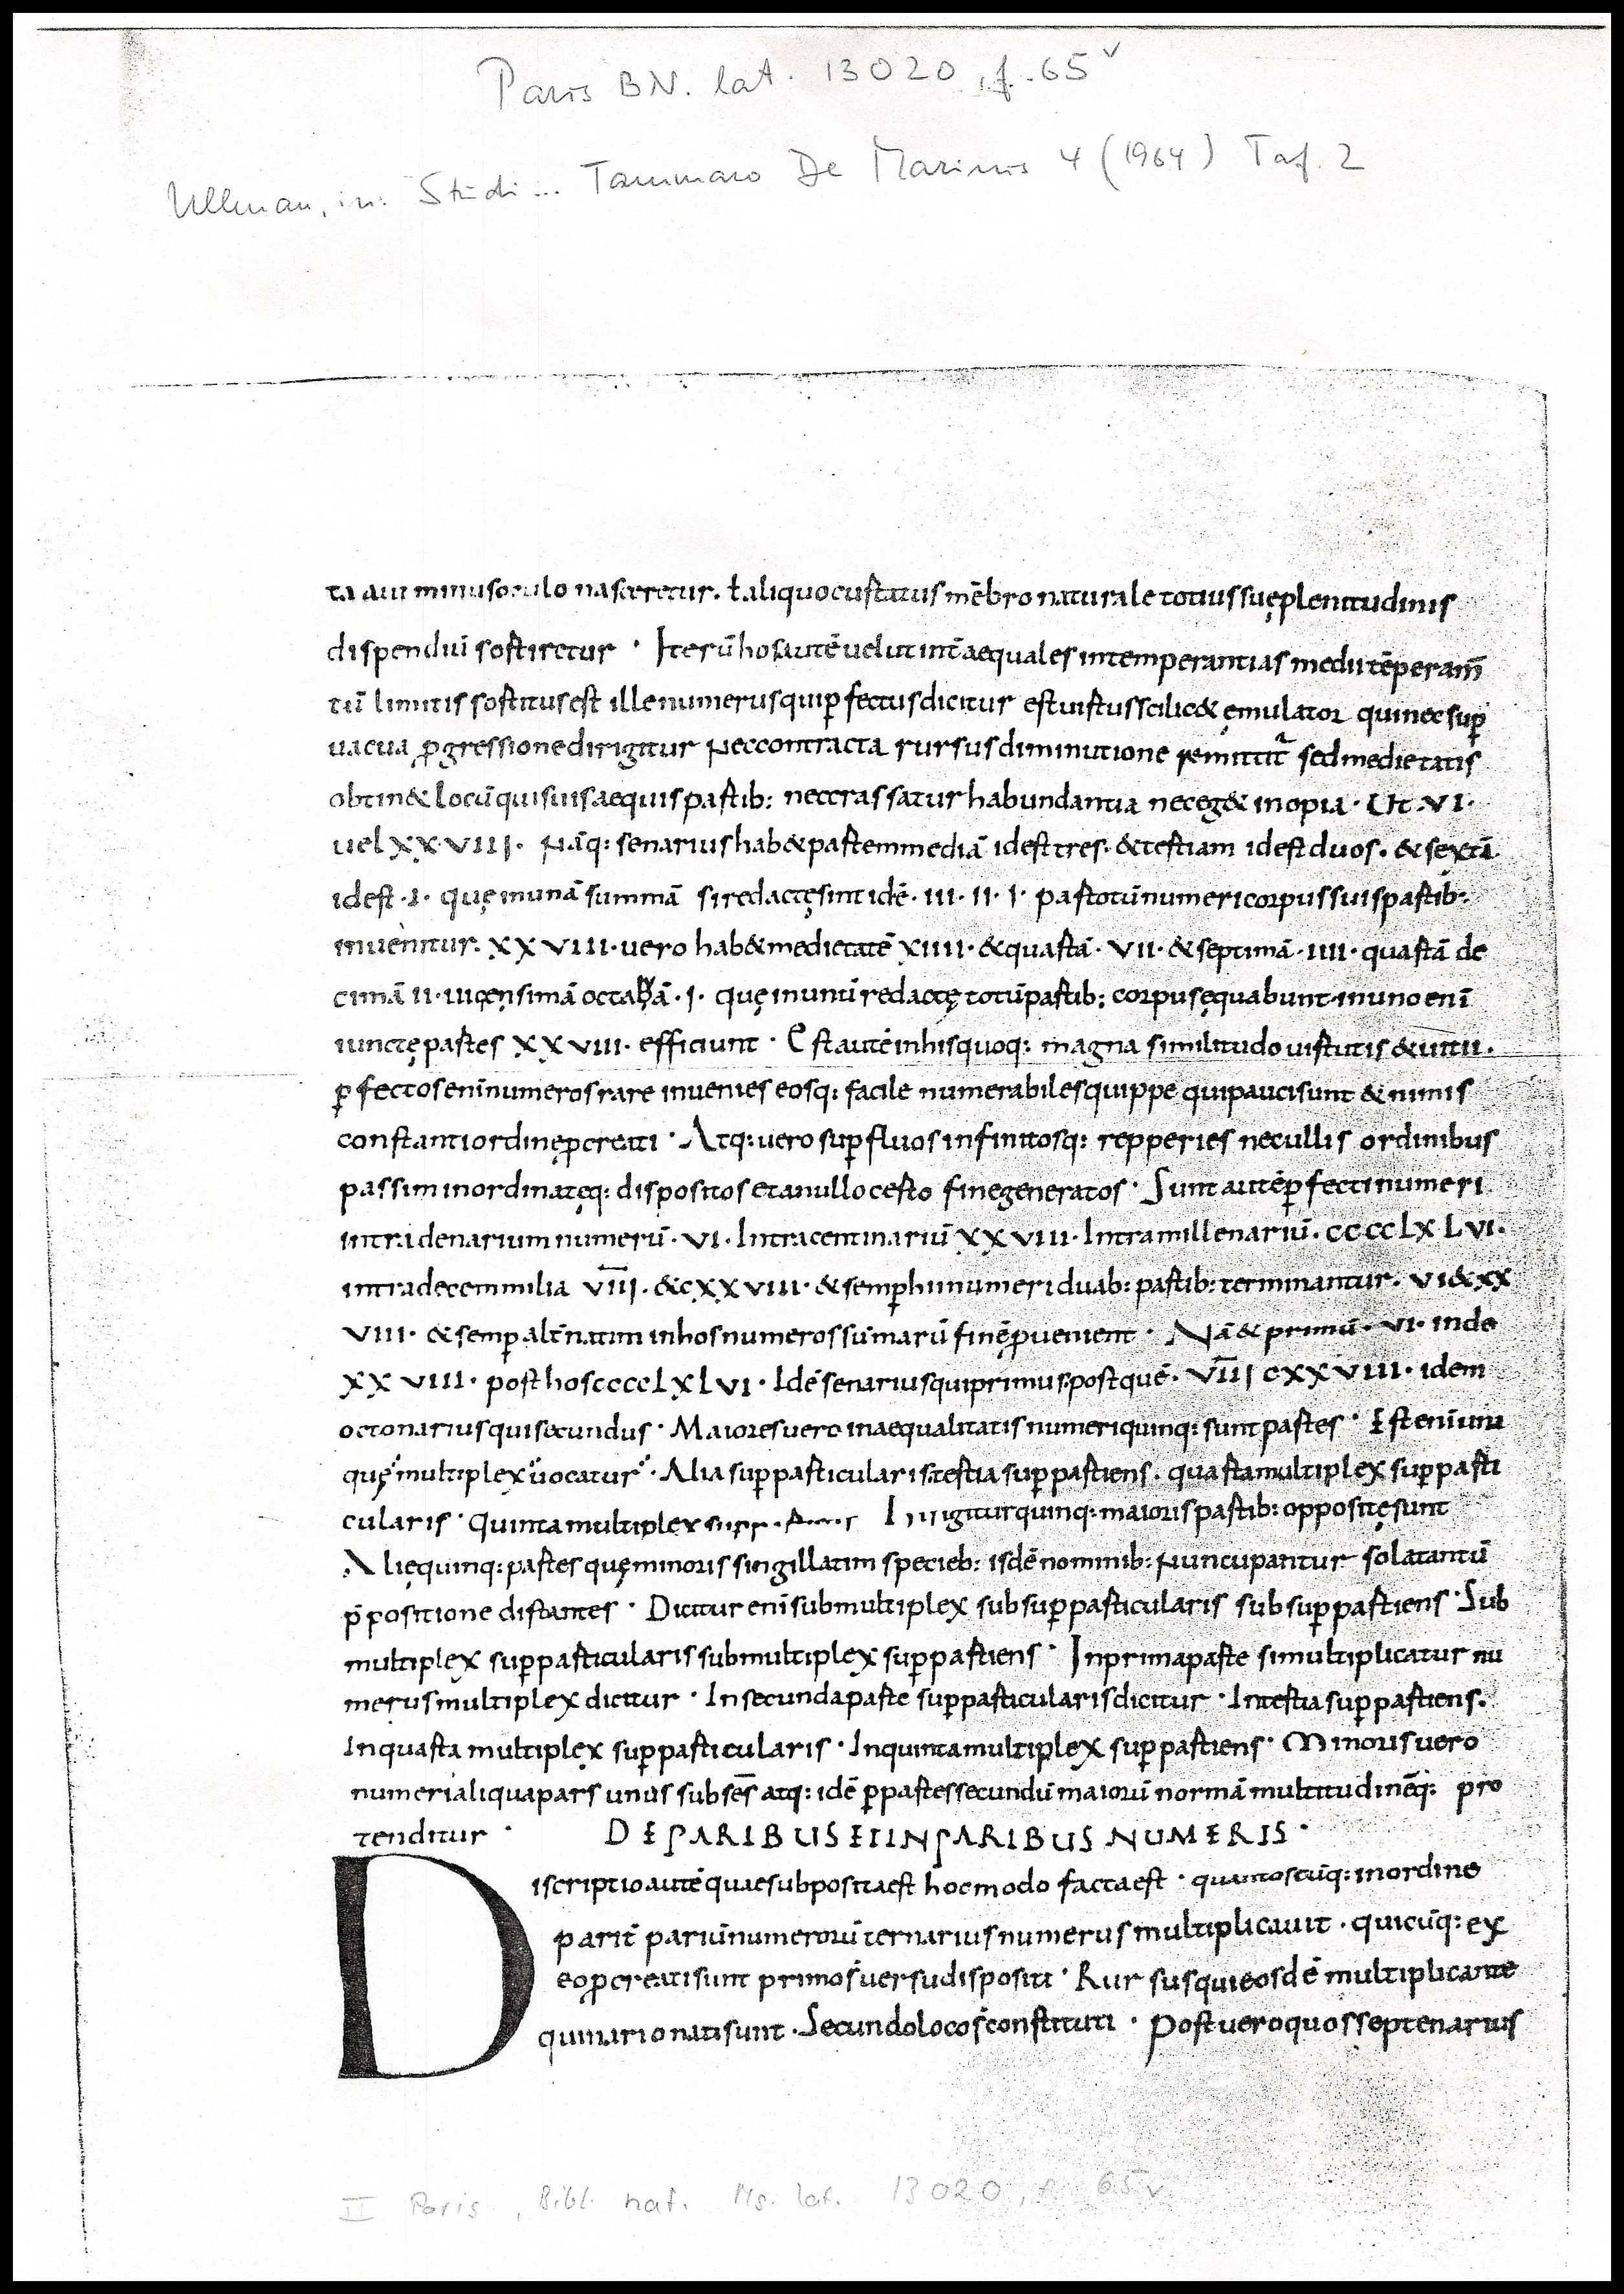 Paris BN. lat. 13020, f. 65v
Ullman, in: Studi... Tammaro De Marinis 4 (1964) Taf. 2
nasceretur. ł aliquo curtatus mēbro naturale totius suę plenitudinis
dispendiū sortiretur · Iterū hos autē velut int̄ aequales intemperantias medii tēperam̄
tū limitis sortitus est ille numerus qui ꝑfectus dicitur est virtus scilic& ęmulator qui nec suꝑ
vacua ꝓgressione dirigitur nec contracta rursus diminutione remittit̄ sed medietatis
obtin& locū qui suis aequis partib: nec crassatur habundantia nec eg& inopia · Ut ·VI·
uel XXVIII· Nāq: senarius hab& partem mediā id est tres· & tertiam id est duos· & sextā
id est ·I· quę in unā summā si redactę sint idē· III· II· I· par totū numeri corpus suis partib:
invenitur. XXVIII· vero hab& medietatē XIIII· & quartā· VII· & septimā· IIII· quartā de
cimā II· vicensimā octabā· I· quę in unū redactę totū partib: corpus ęquabunt in uno enī
iunctę partes XXVIII· efficiunt · Est autē in his quoq: magna similitudo virtutis & vitii.
ꝑfectos enī numeros rare invenies eosq: facile numerabiles quippe qui pauci sunt & nimis
constanti ordinę ꝓcreati · Atq: vero suꝑfluos infinitosq: repperies nec ullis ordinibus
passim inordinateq: dispositos et a nullo certo fine generatos · Sunt autē ꝑfecti numeri
intra denarium numerū· VI· Intra centinariū XXVIII· Intra millenariū· CCCCLXLVI·
intra decem milia VIII· & CXXVIII· & semꝑ hi numeri duab: partib: terminantur· VI & XX
VIII· & semꝑ alt̄natim in hos numeros sūmarū finē ꝓvenient · Nā & primū· VI· inde
XXVIII· post hos CCCCLXLVI· Idē senarius qui primus post quē· VIII CXXVIII· idem
octonarius qui secundus · Maiores vero inaequalitatis numeri quinq: sunt partes · Est enī una
quę multiplex vocatur · Alia suꝑparticularis tertia suꝑpartiens· quarta multiplex suꝑparti
cularis · quinta multiplex igitur quinq: maioris partib: oppositę sunt
Alię quinq: partes quę minoris singillatim specieb: isdē nominib: nuncupantur sola tantū
ꝑpositione distantes · Dicitur enī submultiplex subsuꝑparticularis subsuꝑpartiens · Sub
multiplex suꝑparticularis submultiplex suꝑpartiens · In prima parte si multiplicatur nu
merus multiplex dicitur · In secunda parte suꝑparticularis dicitur · In tertia suꝑpartiens·
In quarta multiplex suꝑparticularis · In quinta multiplex suꝑpartiens · Minoris vero
numeri aliqua pars unus sub sēs atq: idē ꝑ partes secundū maiorū normā multitudinēq: pro
tenditur ·
DE PARIBUS ET INPARIBUS NUMERIS ·
Discriptio autē quae subposita est hoc modo facta est · quantoscūq: in ordine
parit̄ pariū numerorū ternarius numerus multiplicavit · quicūq: ex
eo ꝓcreati sunt primo sversu dispositi · Rursus qui eosdē multiplicante
quinario nati sunt · Secundo loco sconstituti · Post vero quos septenarius
II Paris, Bibl. nat. Ms. lat. 13020, f. 65v